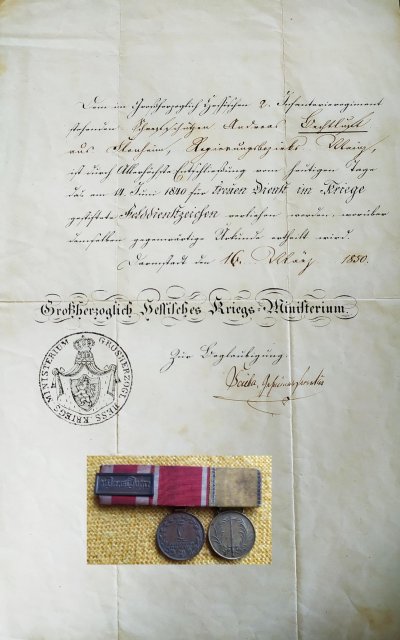 Dem im Großherzoglich Hessischen 2. Infanterieregiment
stehenden Scharfschützen Andreas Bechtluft
aus Regierungsbezirks Mainz,
ist durch Allerhöchste Entschließung vom heutigen Tage
das am 14. Juni 1840 für treuen Dienst im Kriege
gestiftete Felddienstzeichen verliehen worden, worüber
demselben gegenwärtige Urkunde ertheilt wird.
Darmstadt den 16. März 1850.
Großherzoglich Hessisches Kriegs-Ministerium.
Zur Beglaubigung.
Geheimersecretär
GROSHERZOGL. HESS. KRIEGS MINISTERIUM